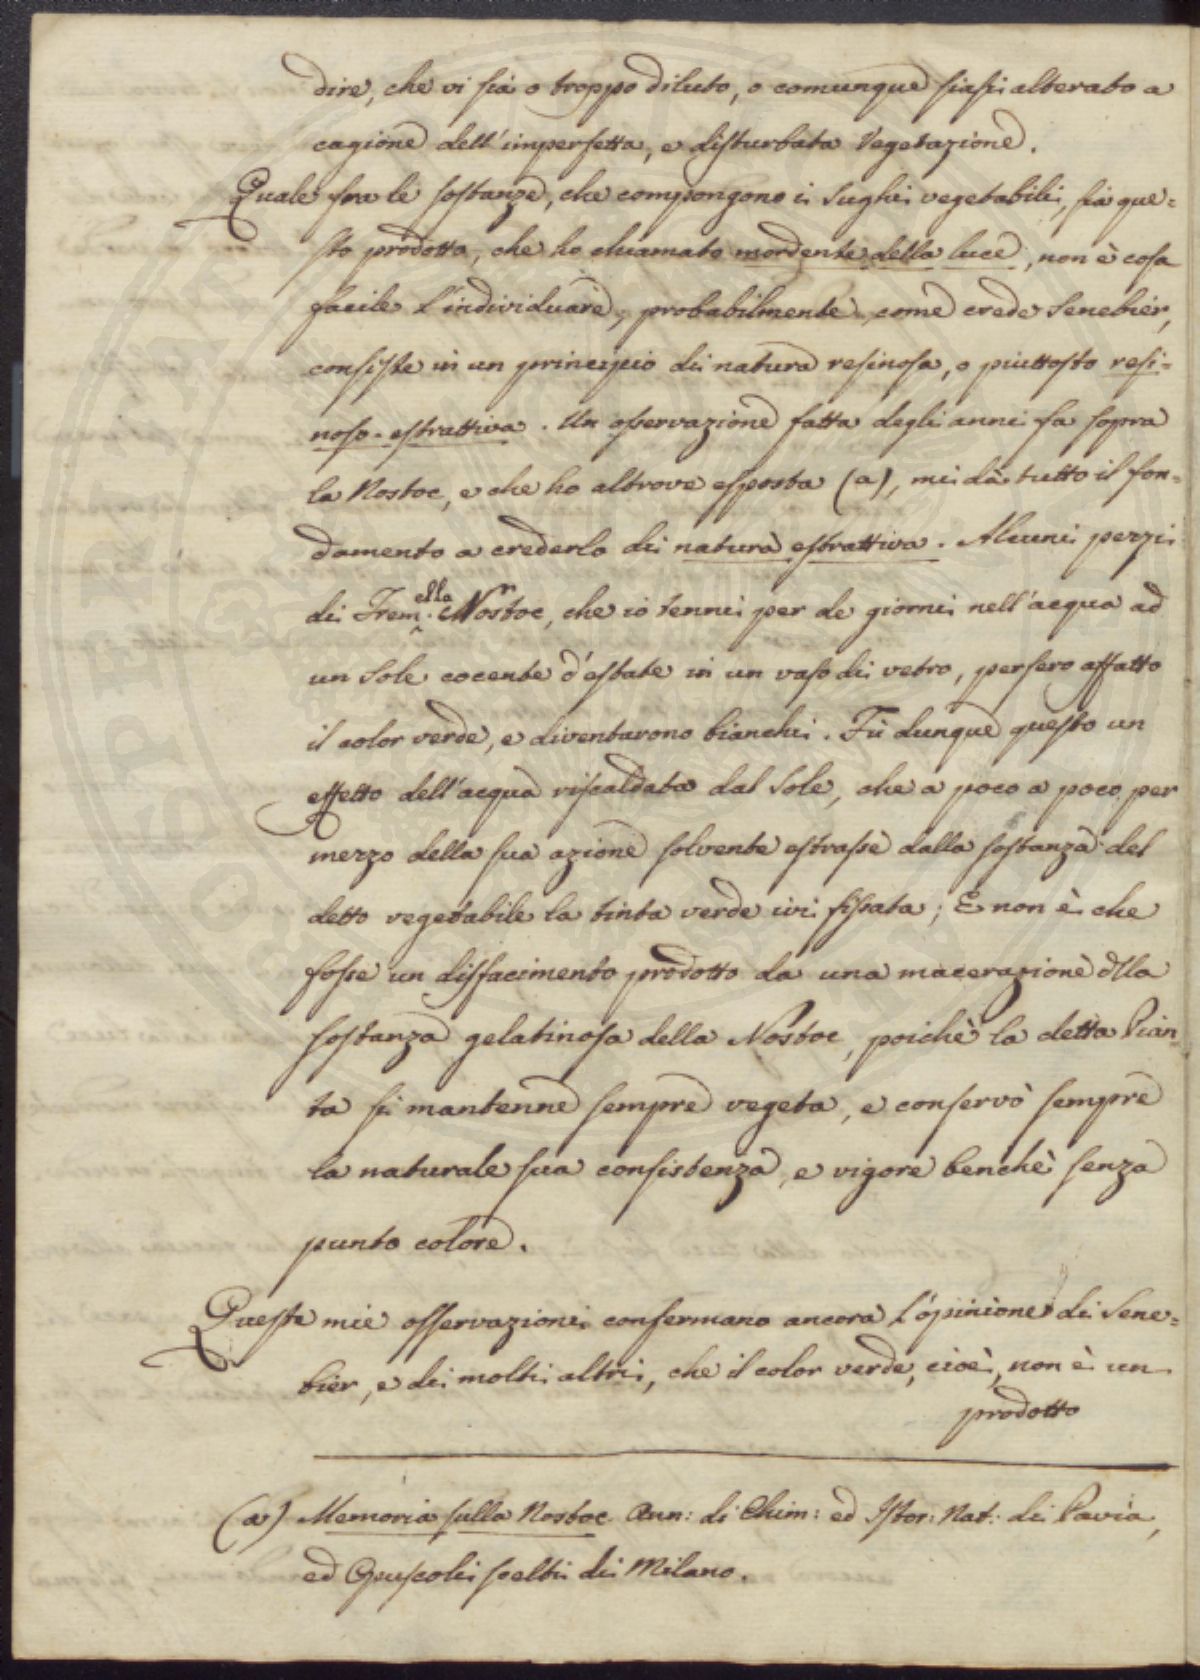 dire, che vi sia o troppo diluto, o comunque siasi alterato a
cagione dell'imperfetta, e disturbata Vegetazione.
Quale fra le sostanze, che compongono i sughi vegetabili, sia que=
sto prodotto, che ho chiamato mordente della luce, non è cosa
facile l'individuare, probabilmente, come crede Senebier,
consiste in un principio di natura resinosa, o piuttosto resi-
noso-estrattiva. Un osservazione fatta degli anni fa sopra
la Nostoc, e che ho altrove esposta (a), mi dà tutto il fon=
damento a crederlo di natura estrattiva. Alcuni pezzi
di Trem.ella Nostoc, che io tenni per de giorni nell'acqua ad
un Sole cocente d'estate in un vaso di vetro, persero affatto
il color verde, e diventarono bianchi. Fù dunque questo un
effetto dell'acqua riscaldata dal Sole, che a poco a poco per
mezzo della sua azione solvente estrasse dalla sostanza del
detto vegetabile la tinta verde ivi fissata; E non è che
fosse un disfacimento prodotto da una macerazione dlla
sostanza gelatinosa della Nostoc, poichè la detta Pian
ta si mantenne sempre vegeta, e conservò sempre
la naturale sua consistenza, e vigore benchè senza
punto colore.
Queste mie osservazioni confermano ancora l'opinione di Sene=
bier, e di molti altri, che il color verde, cioè, non è un
prodotto
(a) Memoria sulla Nostoc Ann: di Chim: ed Istor: Nat: di Pavia,
ed Opuscoli scelti di Milano.